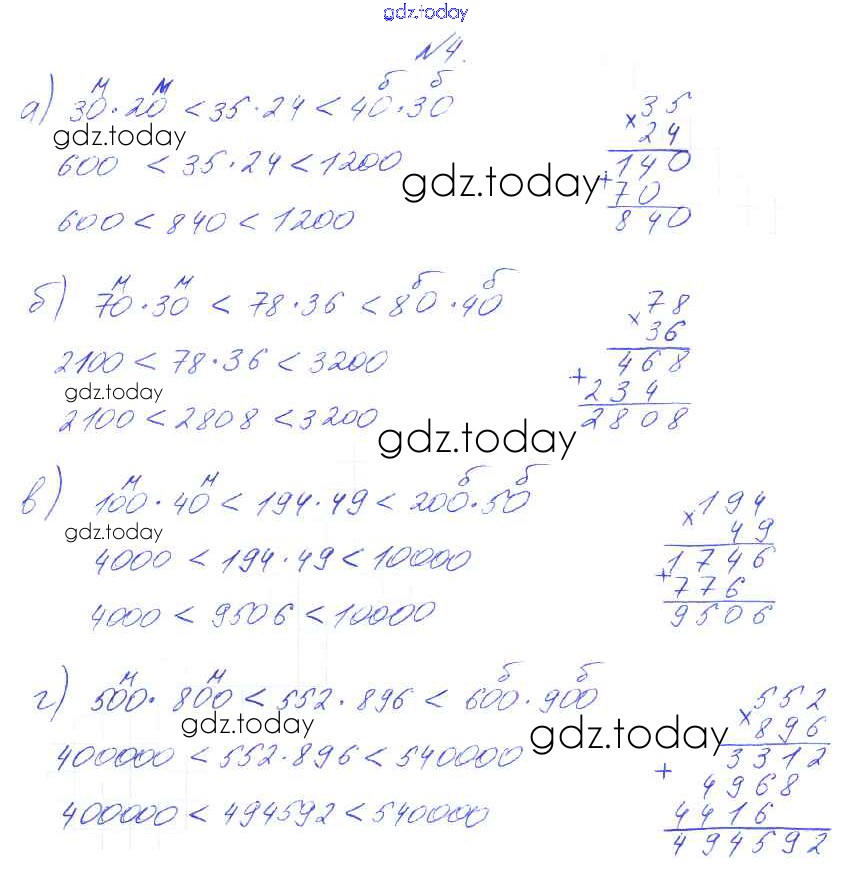 gdz.today
№4.
м м б б
а) 30·20 < 35·24 < 40·30
gdz.today
600 < 35·24 < 1200
gdz.today
600 < 840 < 1200
35
× 24
140
+ 70
840
м м б б
б) 70·30 < 78·36 < 80·40
2100 < 78·36 < 3200
gdz.today
2100 < 2808 < 3200
gdz.today
78
× 36
468
+ 234
2808
м м б б
в) 100·40 < 194·49 < 200·50
gdz.today
4000 < 194·49 < 10000
4000 < 9506 < 10000
194
× 49
1746
+ 776
9506
м м б б
г) 500·800 < 552·896 < 600·900
gdz.today
gdz.today
400000 < 552·896 < 540000
400000 < 494592 < 540000
552
× 896
3312
+ 4968
4416
494592